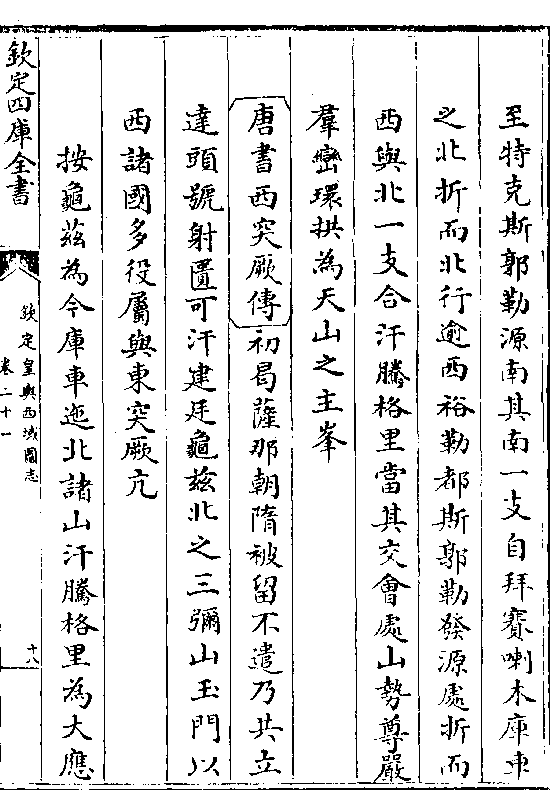 至特克斯郭勒源南其南一支自拜賽喇木庫車
之北折而北行逾西裕勒都斯郭勒發源處折而
西與北一支合汗騰格里當其交會處山勢尊嚴
羣巒環拱為天山之主峯
唐書西突厥傳初曷薩那朝隋被留不遣乃共立
達頭號射匱可汗建廷龜兹北之三彌山玉門以
西諸國多役屬與東突厥亢
按龜兹為今庫車迤北諸山汗騰格里為大應
欽定四庫全書
欽定皇輿西域圖志
卷二十一
十八